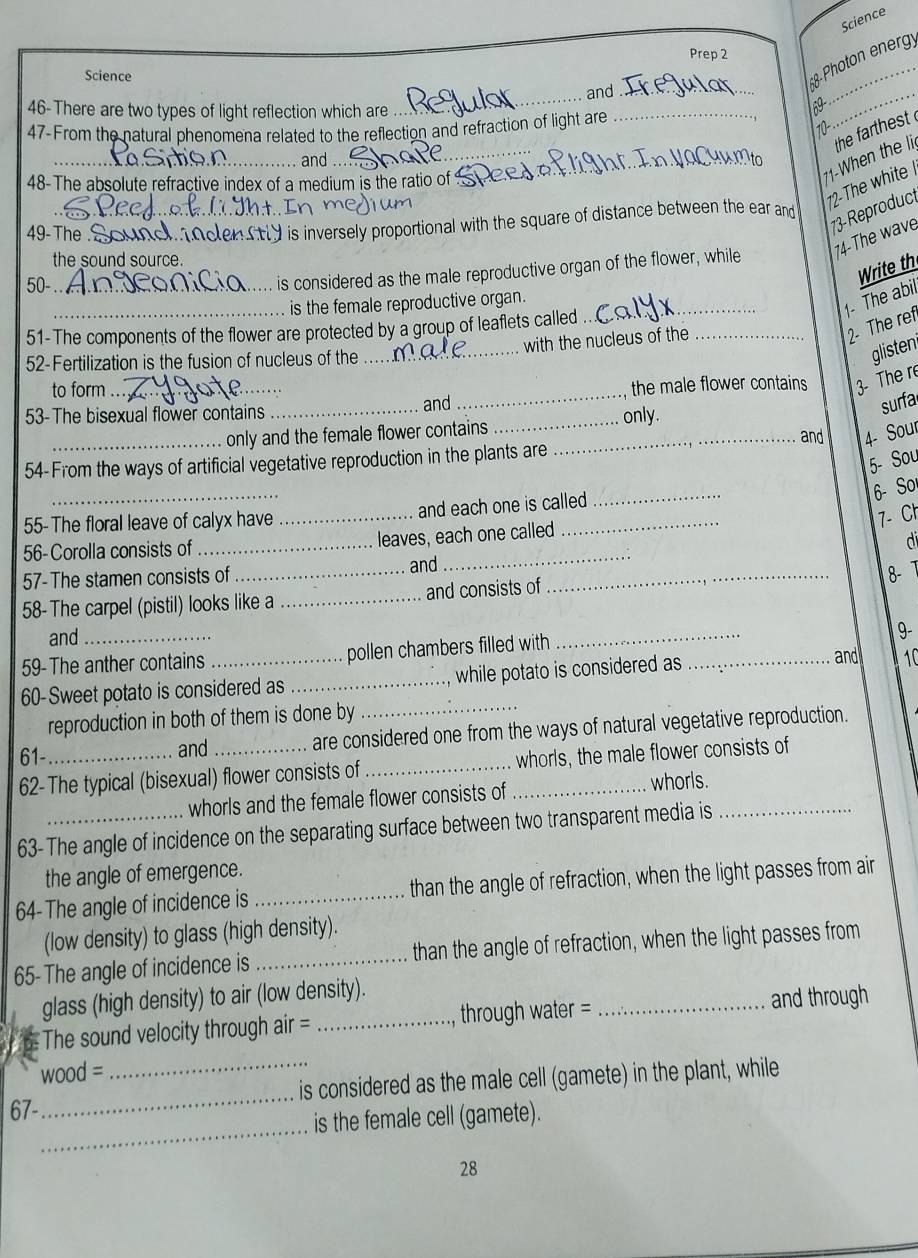 Science
Prep 2
Science
46- There are two types of light reflection which are Regular and Iregular
47- From the natural phenomena related to the reflection and refraction of light are
Pasition and Shape
48- The absolute refractive index of a medium is the ratio of Speed of light In Vacuum to
Speed of light In medium
49- The Sound indenstiy is inversely proportional with the square of distance between the ear and
the sound source.
50- Angeonicia is considered as the male reproductive organ of the flower, while
is the female reproductive organ.
51- The components of the flower are protected by a group of leaflets called Calyx
52- Fertilization is the fusion of nucleus of the male with the nucleus of the
to form Zygote
53- The bisexual flower contains and , the male flower contains
only and the female flower contains only.
54- From the ways of artificial vegetative reproduction in the plants are , and
55- The floral leave of calyx have and each one is called
56- Corolla consists of leaves, each one called
57- The stamen consists of and
58- The carpel (pistil) looks like a and consists of ,
and
59- The anther contains pollen chambers filled with
60- Sweet potato is considered as , while potato is considered as and
reproduction in both of them is done by
61- and are considered one from the ways of natural vegetative reproduction.
62- The typical (bisexual) flower consists of whorls, the male flower consists of
whorls and the female flower consists of whorls.
63- The angle of incidence on the separating surface between two transparent media is
the angle of emergence.
64- The angle of incidence is than the angle of refraction, when the light passes from air
(low density) to glass (high density).
65- The angle of incidence is than the angle of refraction, when the light passes from
glass (high density) to air (low density).
The sound velocity through air = , through water = and through
wood =
67- is considered as the male cell (gamete) in the plant, while
is the female cell (gamete).
28
68- Photon energy
69-
70-
the farthest
71- When the
72- The white
73- Reproduct
74- The wave
Write th
1- The abil
2- The ref
glisten
3- The re
surfa
4- Sour
5- Sou
6- So
7- Ch
di
8-
9-
10